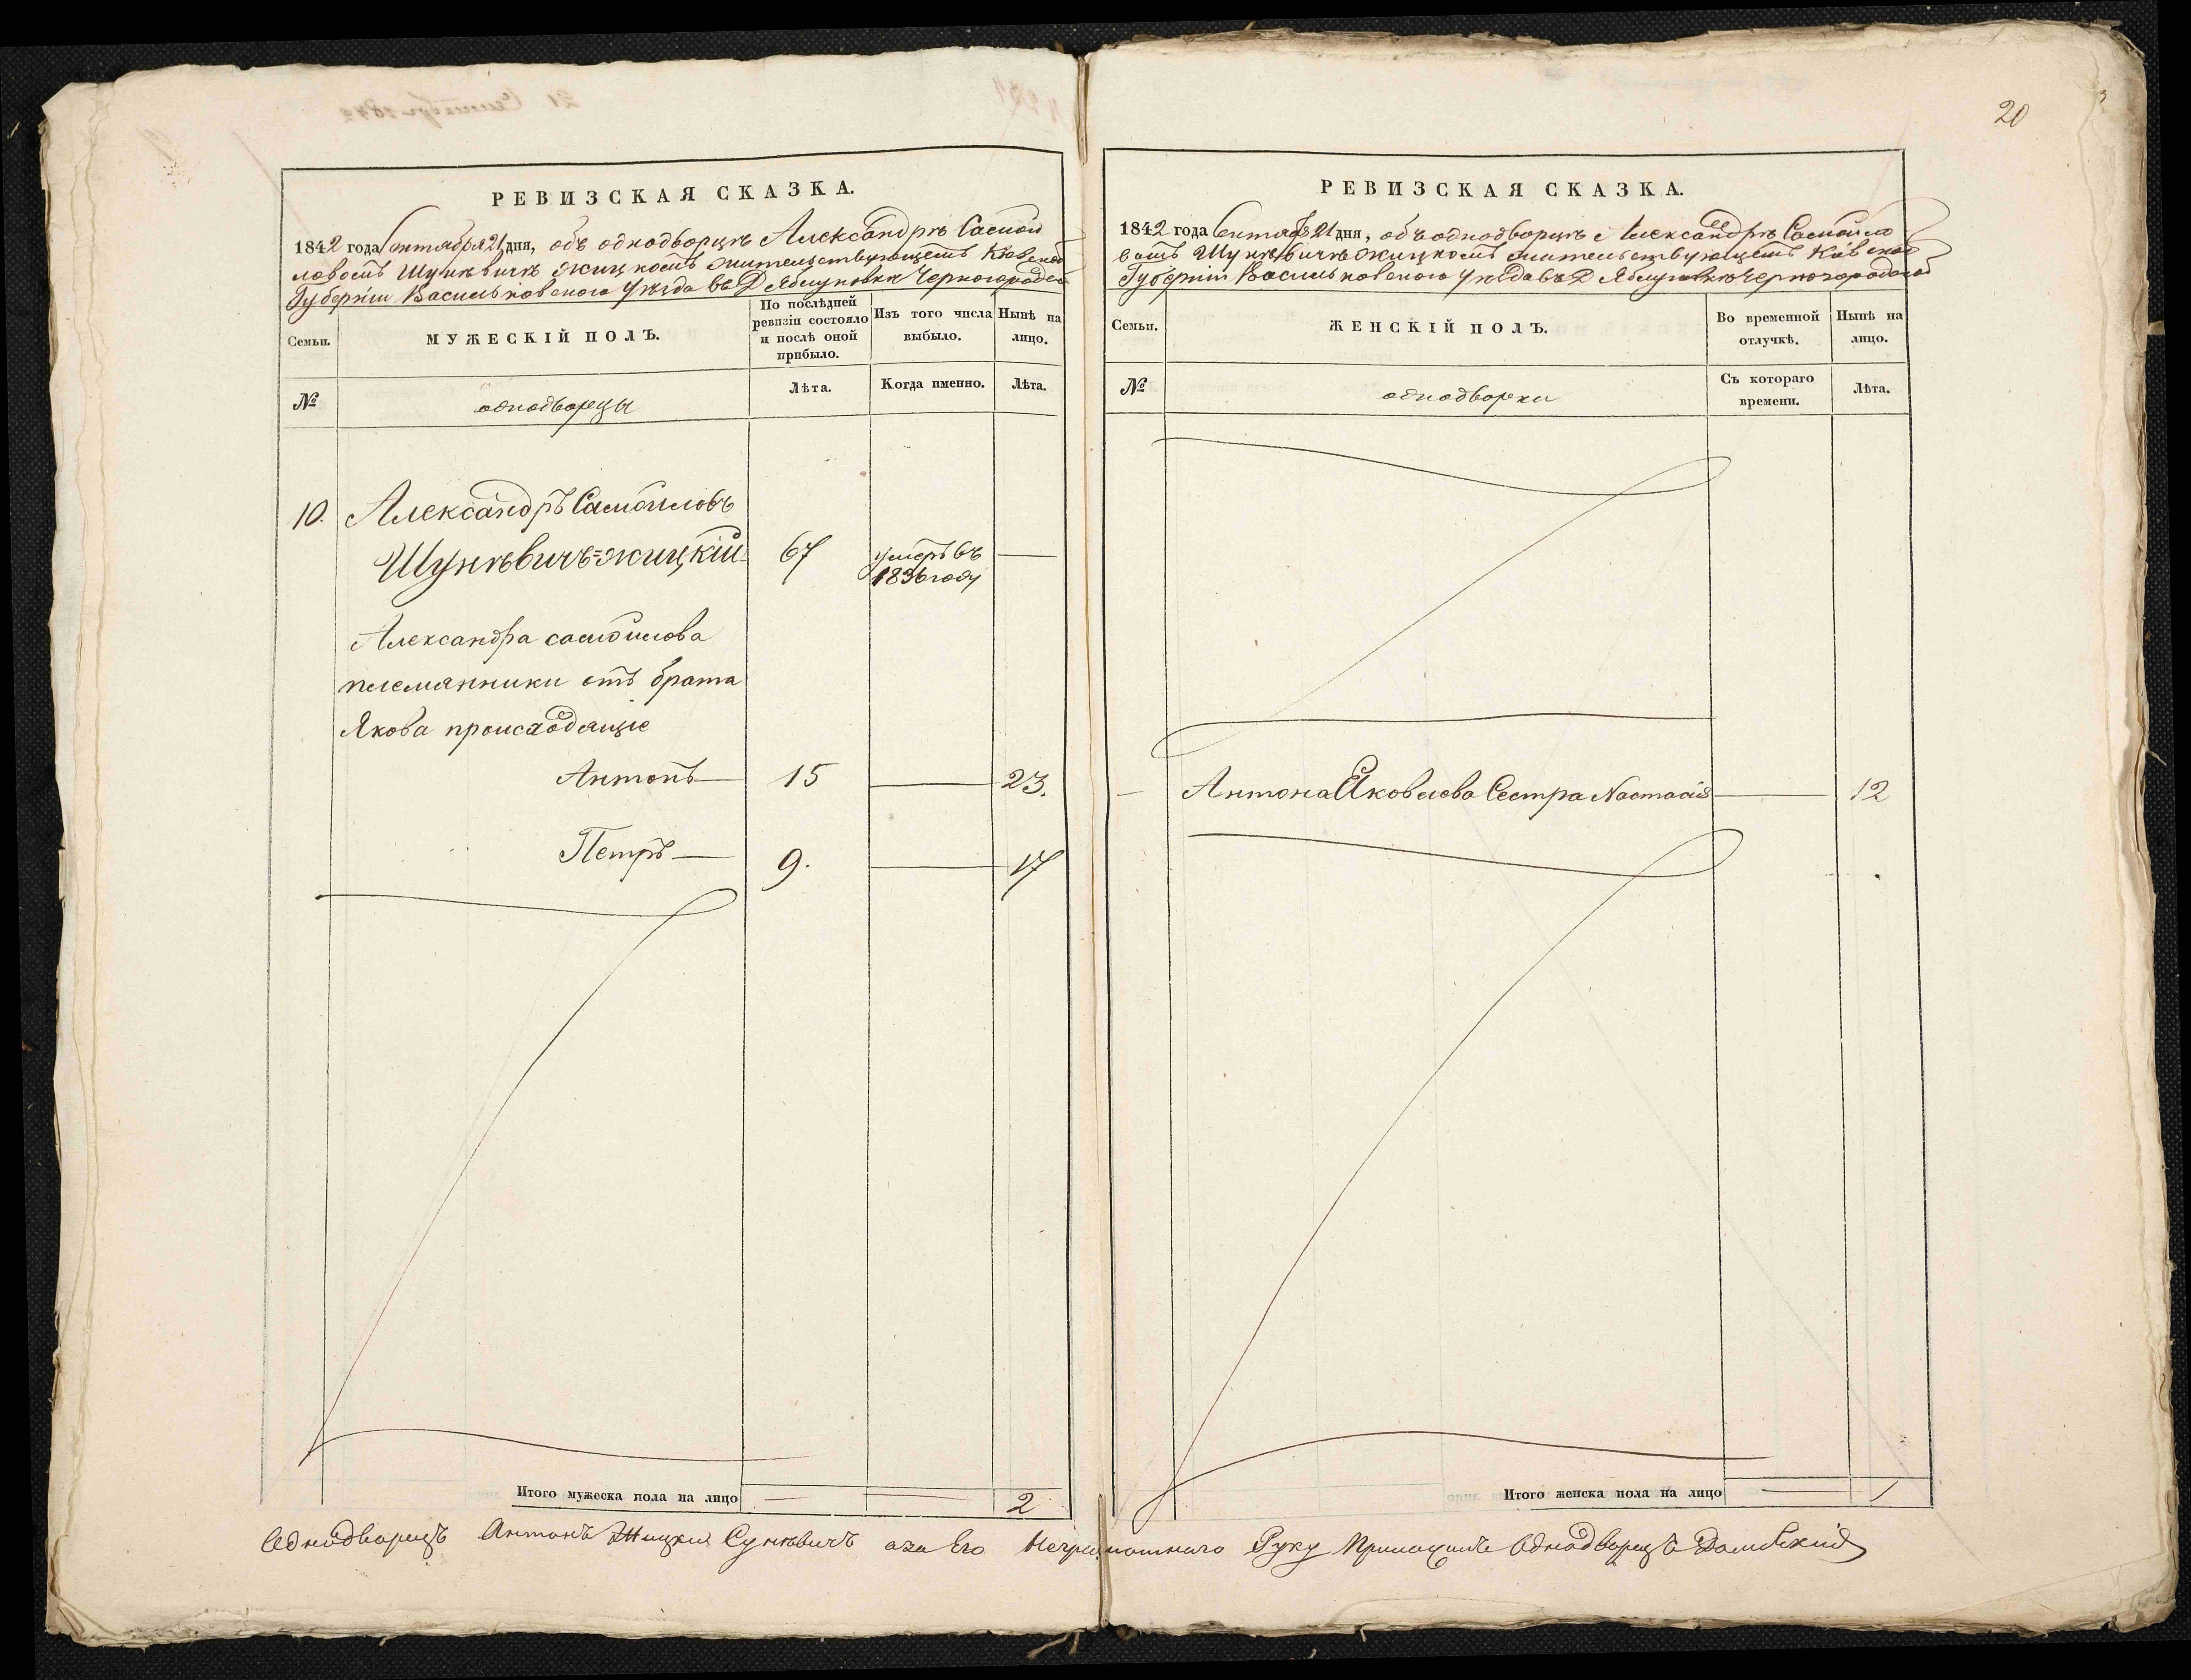 20
РЕВИЗСКАЯ СКАЗКА.
1842 года Сентября 21 дня, объ однодворцѣ Александрѣ Самой
ловомъ Шунѣвичѣ Жицкомъ жительствующемъ Кіевской
Губерніи Васильковскаго Уѣзда въ Д Яблуновки Черногородск
Семьи.
МУЖЕСКІЙ ПОЛЪ.
По послѣдней
ревизіи состояло
и послѣ оной
прибыло.
Изъ того числа
выбыло.
Нынѣ на
лицо.
№
однодворцы
Лѣта.
Когда именно.
Лѣта.
10. Александръ Самойловъ
Шунѣвичъ=жицкій 67 умеръ въ
1836 году
Александра самойлова
племянники отъ брата
Якова происходящіе
Антонъ 15 23.
Петръ 9. 17
Итого мужеска пола на лицо 2
РЕВИЗСКАЯ СКАЗКА.
1842 года Сентяб 21 дня, объ однодворцѣ Александрѣ Самойло
вомъ Шунѣвичѣ Жицкомъ жительствующемъ Кіевской
Губерніи Васильковскаго Уѣзда въ Д Яблуновкѣ Черногородской
Семьи.
ЖЕНСКІЙ ПОЛЪ.
Во временной
отлучкѣ.
Нынѣ на
лицо.
№
однодворки
Съ котораго
времени.
Лѣта.
Антона Яковлева Сестра Настасія 12
Итого женска пола на лицо 1
Однодворецъ Антонъ Жицкій Сунѣвичъ аза Его Неграмотнаго Руку Приложилъ Однодворецъ